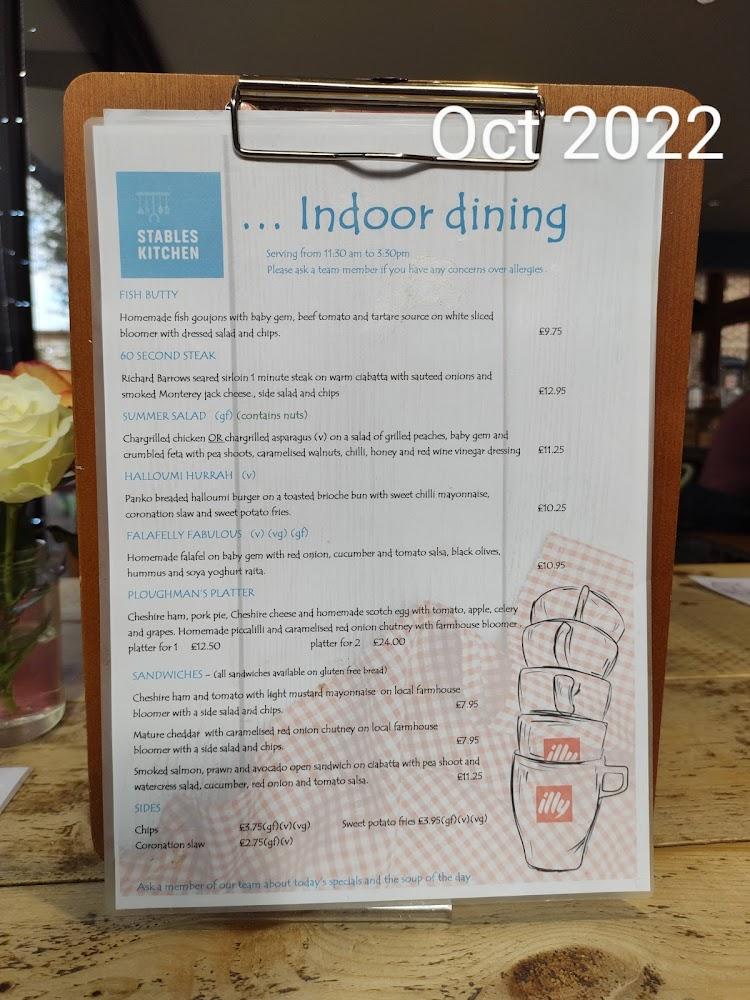 Oct 2022
STABLES
KITCHEN
... Indoor dining
Serving from 11:30 am to 3:30pm
Please ask a team member if you have any concerns over allergies.
FISH BUTTY
Homemade fish goujons with baby gem, beef tomato and tartare source on white sliced
bloomer with dressed salad and chips. £9.75
60 SECOND STEAK
Richard Barrows seared sirloin 1 minute steak on warm ciabatta with sauteed onions and
smoked Monterey jack cheese., side salad and chips £12.95
SUMMER SALAD (gf) (contains nuts)
Chargrilled chicken OR chargrilled asparagus (v) on a salad of grilled peaches, baby gem and
crumbled feta with pea shoots, caramelised walnuts, chilli, honey and red wine vinegar dressing £11.25
HALLOUMI HURRAH (v)
Panko breaded halloumi burger on a toasted brioche bun with sweet chilli mayonnaise,
coronation slaw and sweet potato fries. £10.25
FALAFELLY FABULOUS (v) (vg) (gf)
Homemade falafel on baby gem with red onion, cucumber and tomato salsa, black olives,
hummus and soya yoghurt raita. £10.95
PLOUGHMAN'S PLATTER
Cheshire ham, pork pie, Cheshire cheese and homemade scotch egg with tomato, apple, celery
and grapes. Homemade piccalilli and caramelised red onion chutney with farmhouse bloomer.
platter for 1 £12.50 platter for 2 £24.00
SANDWICHES – (all sandwiches available on gluten free bread)
Cheshire ham and tomato with light mustard mayonnaise on local farmhouse
bloomer with a side salad and chips. £7.95
Mature cheddar with caramelised red onion chutney on local farmhouse
bloomer with a side salad and chips. £7.95
Smoked salmon, prawn and avocado open sandwich on ciabatta with pea shoot and
watercress salad, cucumber, red onion and tomato salsa. £11.25
SIDES
Chips £3.75(gf)(v)(vg) Sweet potato fries £3.95(gf)(v)(vg)
Coronation slaw £2.75(gf)(v)
Ask a member of our team about today's specials and the soup of the day
illy
illy